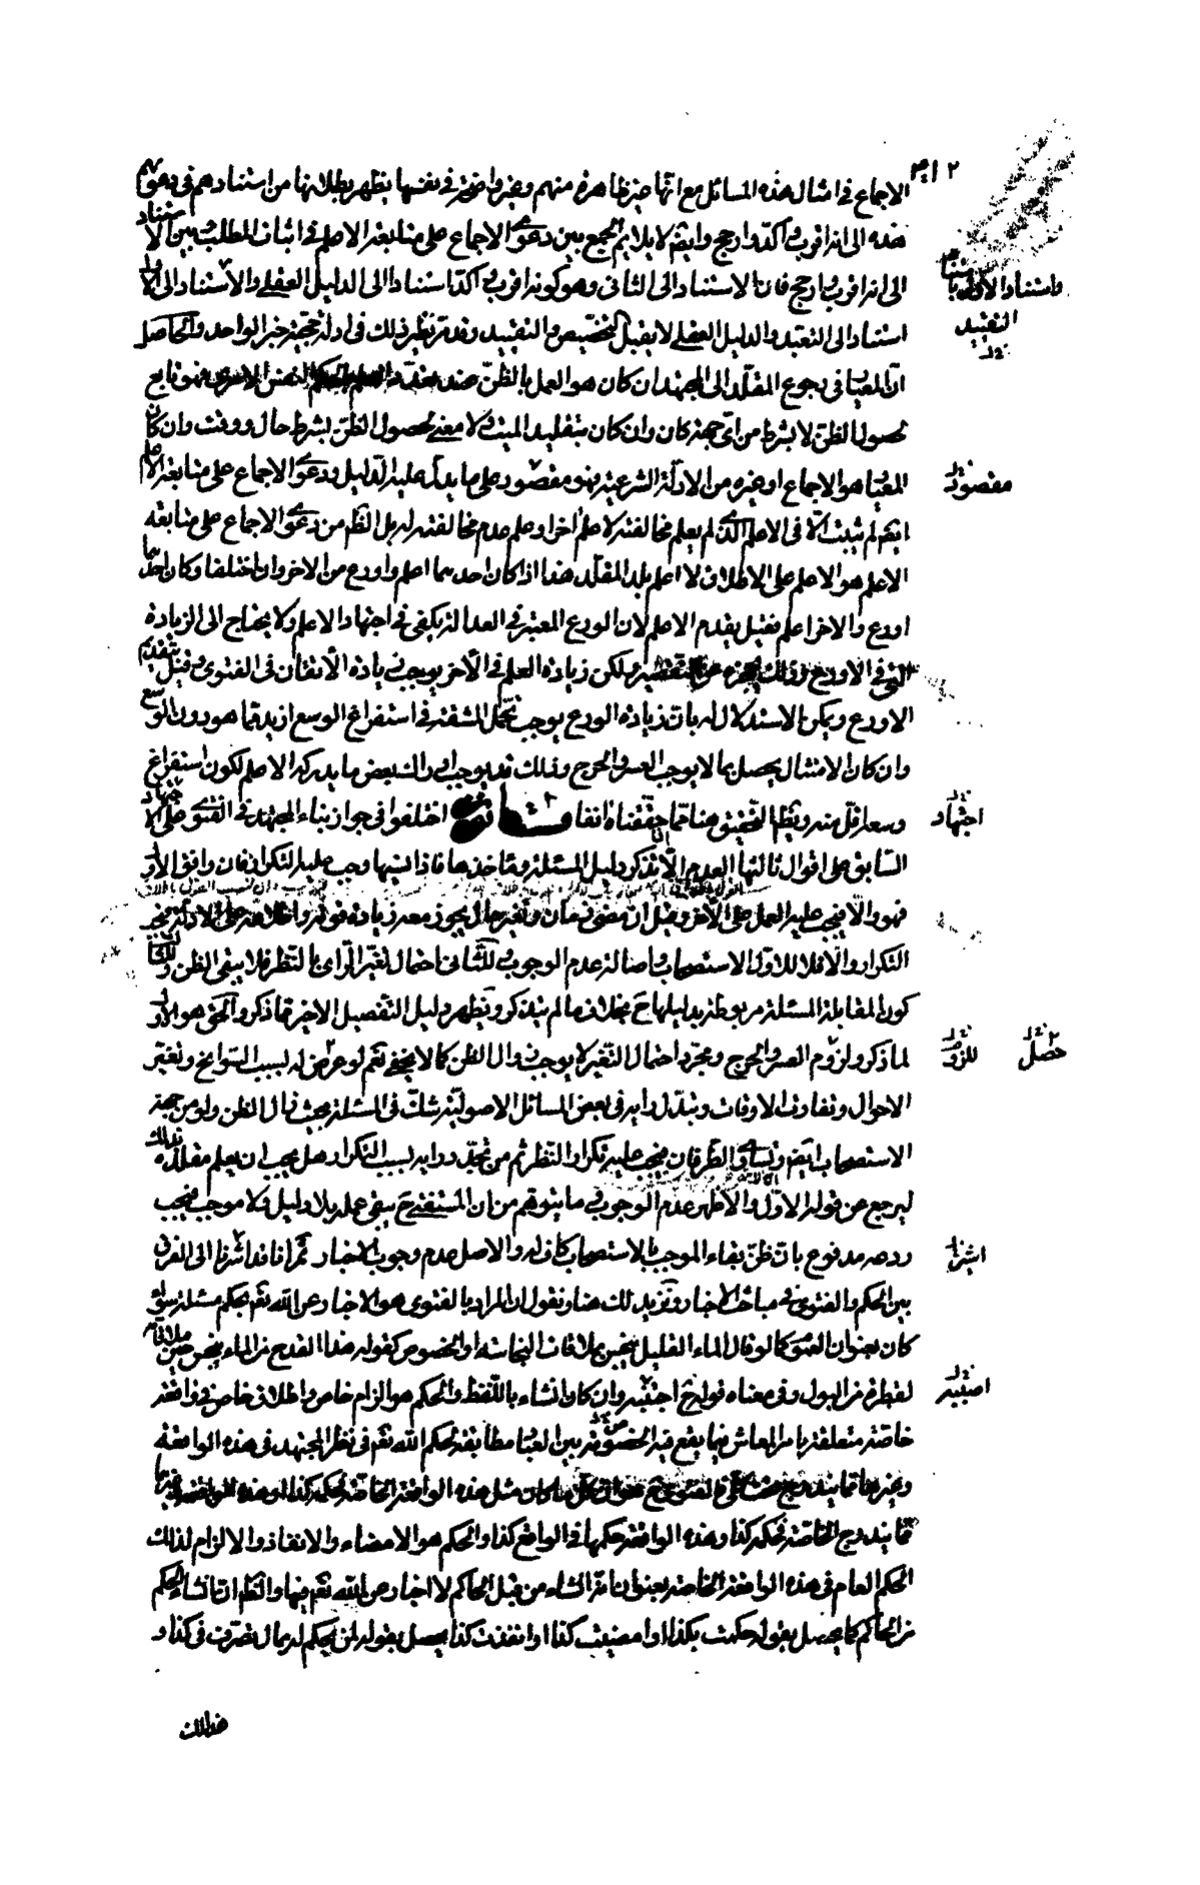 الاجماع فی امثال هذه المسائل مع انّها غیر ظاهرة منهم و غیر واضحة فی نفسها یظهر بطلانها من استنادهم فی دعویهم
هذه الی انه اقرب و آکد و ارجح و ایضا لا یلایم الجمع بین دعوی الاجماع علی متابعة الاعلم فی اثبات المطلب و بین الاستناد
الی انه اقرب و ارجح فان الاستناد الی الثانی و هو کونه اقرب و آکد استناد الی الدلیل العقلی و الاستناد الی الاول
استناد الی التعبد و الدلیل العقلی لا یقبل التخصیص و التقیید و قد مر نظیر ذلک فی ادلة حجیة خبر الواحد و الحاصل
ان المعیار فی رجوع المقلد الی المجتهد ان کان هو العمل بالظن عند فهو تابع
لحصول الظن لا بشرط من ای جهة کان و ان کان بتقلید المیت و لا معنی لحصول الظن بشرط حال و وقت و ان کان
المعیار هو الاجماع او غیره من الادلة الشرعیة فهو مقصور علی ما یدل علیه الدلیل و دعوی الاجماع علی متابعة الاعلم
ایضا لم یثبت الّا فی الاعلم الذی لم یعلم مخالفته لاعلم اخر او علم عدم مخالفته له بل الظ من دعوی الاجماع علی متابعة
الاعلم هو الاعلم علی الاطلاق لا اعلم بلد المقلد هذا اذا کان احدهما اعلم و اورع من الاخر و ان اختلفا و کان احدهما
اورع و الاخر اعلم فقیل یقدم الاعلم لان الورع المعتبر فی العدالة یکفی فی اجتهاد الاعلم و لا یحتاج الی الزیادة
التی فی الاورع و ذلک یحجزه عن التقصیر و لکن زیادة العلم فی الآخر یوجب زیادة الاتقان فی الفتوی و قیل بتقدیم
الاورع و یمکن الاستدلال له بان زیادة الورع یوجب تحمّل المشقة فی استفراغ الوسع ازید مما هو دون الوسع
و ان کان الامتثال یحصل بما لا یوجب العسر و الحرج و ذلک قد یوجب ادراک بعض ما یدرکه الاعلم لکون استفراغ
وسعه اقل منه و یظهر التحقیق هنا مما حققناه انفا اختلفوا فی جواز بناء المجتهد فی الفتوی علی الاجتهاد
السابق علی اقوال ثالثها العدم الّا بتذکر دلیل المسئلة و مأخذها فاذا نسیها وجب علیه التکرار فان وافق الاول
فهو و الا فیجب علیه العمل علی الآخر و قیل ان مضی زمان و تغیر حال یجوز معه زیادة قوته و اطلاعه علی الادلة فیجب
التکرار و الّا فلا للاول الاستصحاب و اصالة عدم الوجوب و للثانی احتمال تغیّر الرّای بالنظر فلا یبقی الظن و للثالث
کون المقابلة المسئلة مربوطة بدلیلها ح بخلاف ما لم یتذکر و یظهر دلیل التفصیل الاخیر مما ذکر و الحق هو الاول
لما ذکر و لزوم العسر و الحرج و مجرد احتمال التغیر لا یوجب زوال الظن کما لا یخفی نعم لو عرض له بسبب السوانح و تغیر
الاحوال و تفاوت الاوقات و تبدّل رایه فی بعض المسائل الاصولیة شک فی المسئلة بحیث زال الظن و لو من جهة
الاستصحاب ایضا و تساوی الطرفان فیجب علیه تکرار النظر ثم من تجدد رایه بسبب التکرار هل یجب ان یعلم مقلده بذلک
لیرجع عن قوله الاول و الاظهر عدم الوجوب و ما یتوهم من ان المستفتی ح یبقی عمله بلا دلیل و لا موجب فیجب
ردعه مدفوع بان ظن بقاء الموجب بالاستصحاب کاف له و الاصل عدم وجوب الاخبار ثم انا قد اشرنا الی الفرق
بین الحکم و الفتوی فی مباحث الاخبار و نزید لک هنا و نقول ان المراد بالفتوی هو الاخبار عن الله تعم بحکم مسئلة سواء
کان بعنوان العموم کما لو قال الماء القلیل ینجس بملاقات النجاسة او الخصوص کقوله هذا القدح من الماء نجس حین ملاقاته
لقطرة من البول و فی معناه قوله ح اجتنبه و ان کان انشاء باللفظ و الحکم هو الزام خاص و اطلاق خاص فی واقعة
خاصة متعلقة بامر المعاش فیما یقع فیه الخصومة بین العباد مطابقة لحکم الله تعم فی نظر المجتهد فی هذه الواقعة
و غیرها مما کان مثل هذه الواقعة الخاصة فحکمه کذا او هذه الواقعة و غیرها
مما یندرج الخاصة فحکمه کذا و هذه الواقعة حکمها فی الواقع کذا و الحکم هو الامضاء و الانفاذ و الالزام لذلک
الحکم العام فی هذه الواقعة الخاصة بعنوان انه انشاء من قبل الحاکم لا اخبار عن الله تعم فیها و الظ ان انشاء الحکم
من الحاکم کما یحصل بقوله حکمت بکذا او امضیت کذا او انفذت کذا یحصل بقوله لمن یحکم له بمال تصرف فی کذا و
هذا لک
و استناد الاول
التقیید
مقصود
اجتهاد
حصل
للزوم
اشرنا
اجتنبه